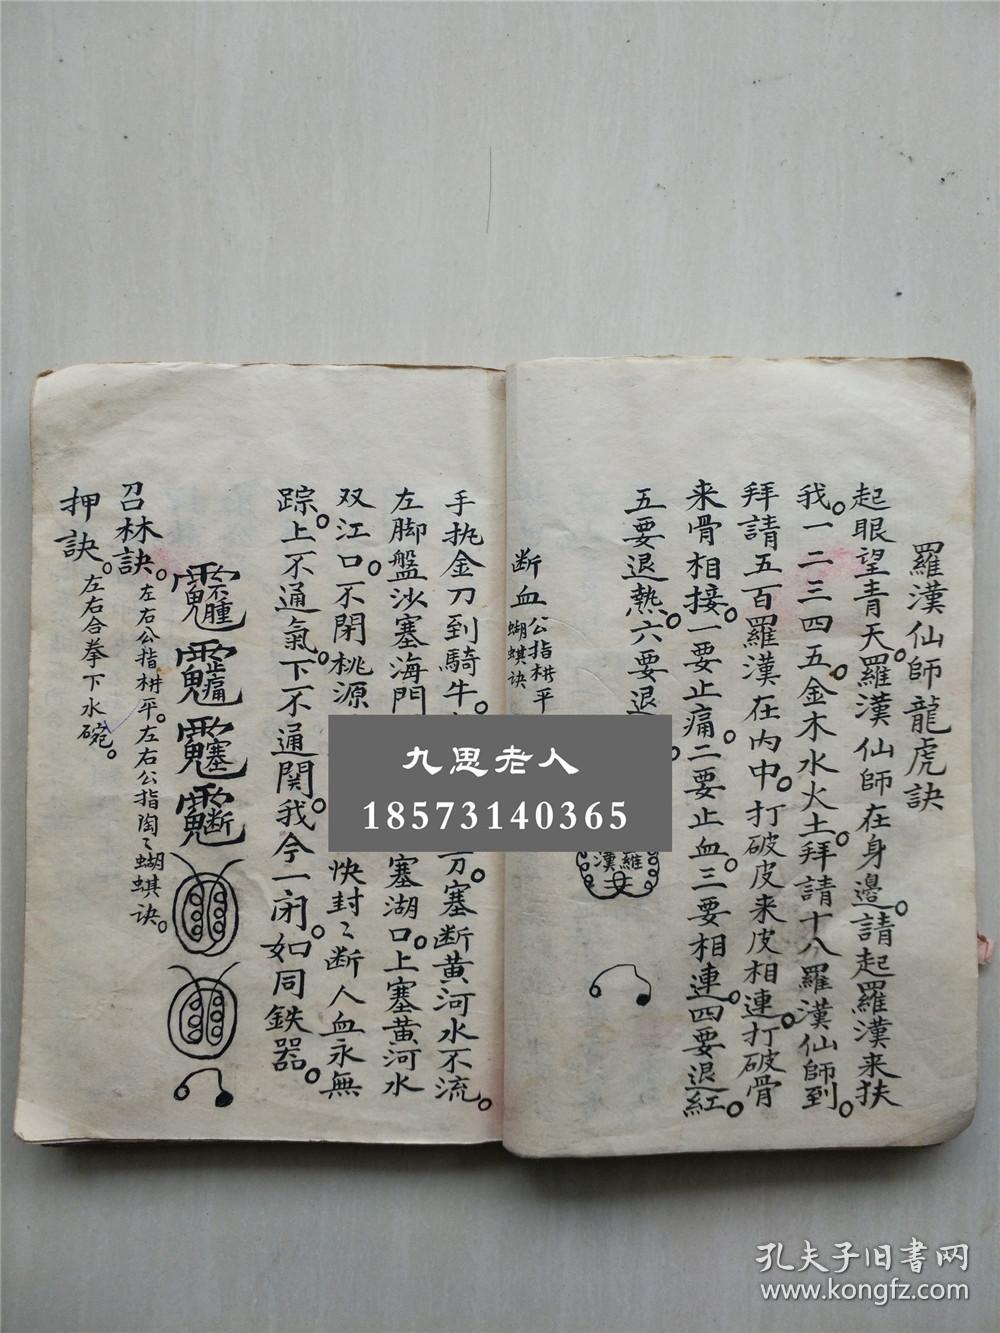 羅漢仙師龍虎訣
起眼望青天。羅漢仙師在身邊。請起羅漢来扶
我。一二三四五。金木水火土。拜請十八羅漢仙師到。
拜請五百羅漢在内中。打破皮来皮相連。打破骨
来骨相接。一要止痛。二要止血。三要相連。四要退紅。
五要退熱。六要退
羅漢
断血公指耕平
蝴蜞诀
手执金刀到騎牛。
刀。塞断黄河水不流。
左脚盤沙塞海門
塞湖口。上塞黄河水
双江口。不閉桃源
快封〻断人血永無
踪。上不通氣。下不通関。我今一闭。如同鉄器。
召林訣。左右公指耕平。左右公指陶〻蝴蜞诀。
押訣。左右合拳下水碗。
九思老人
18573140365
孔夫子旧書网
www.kongfz.com